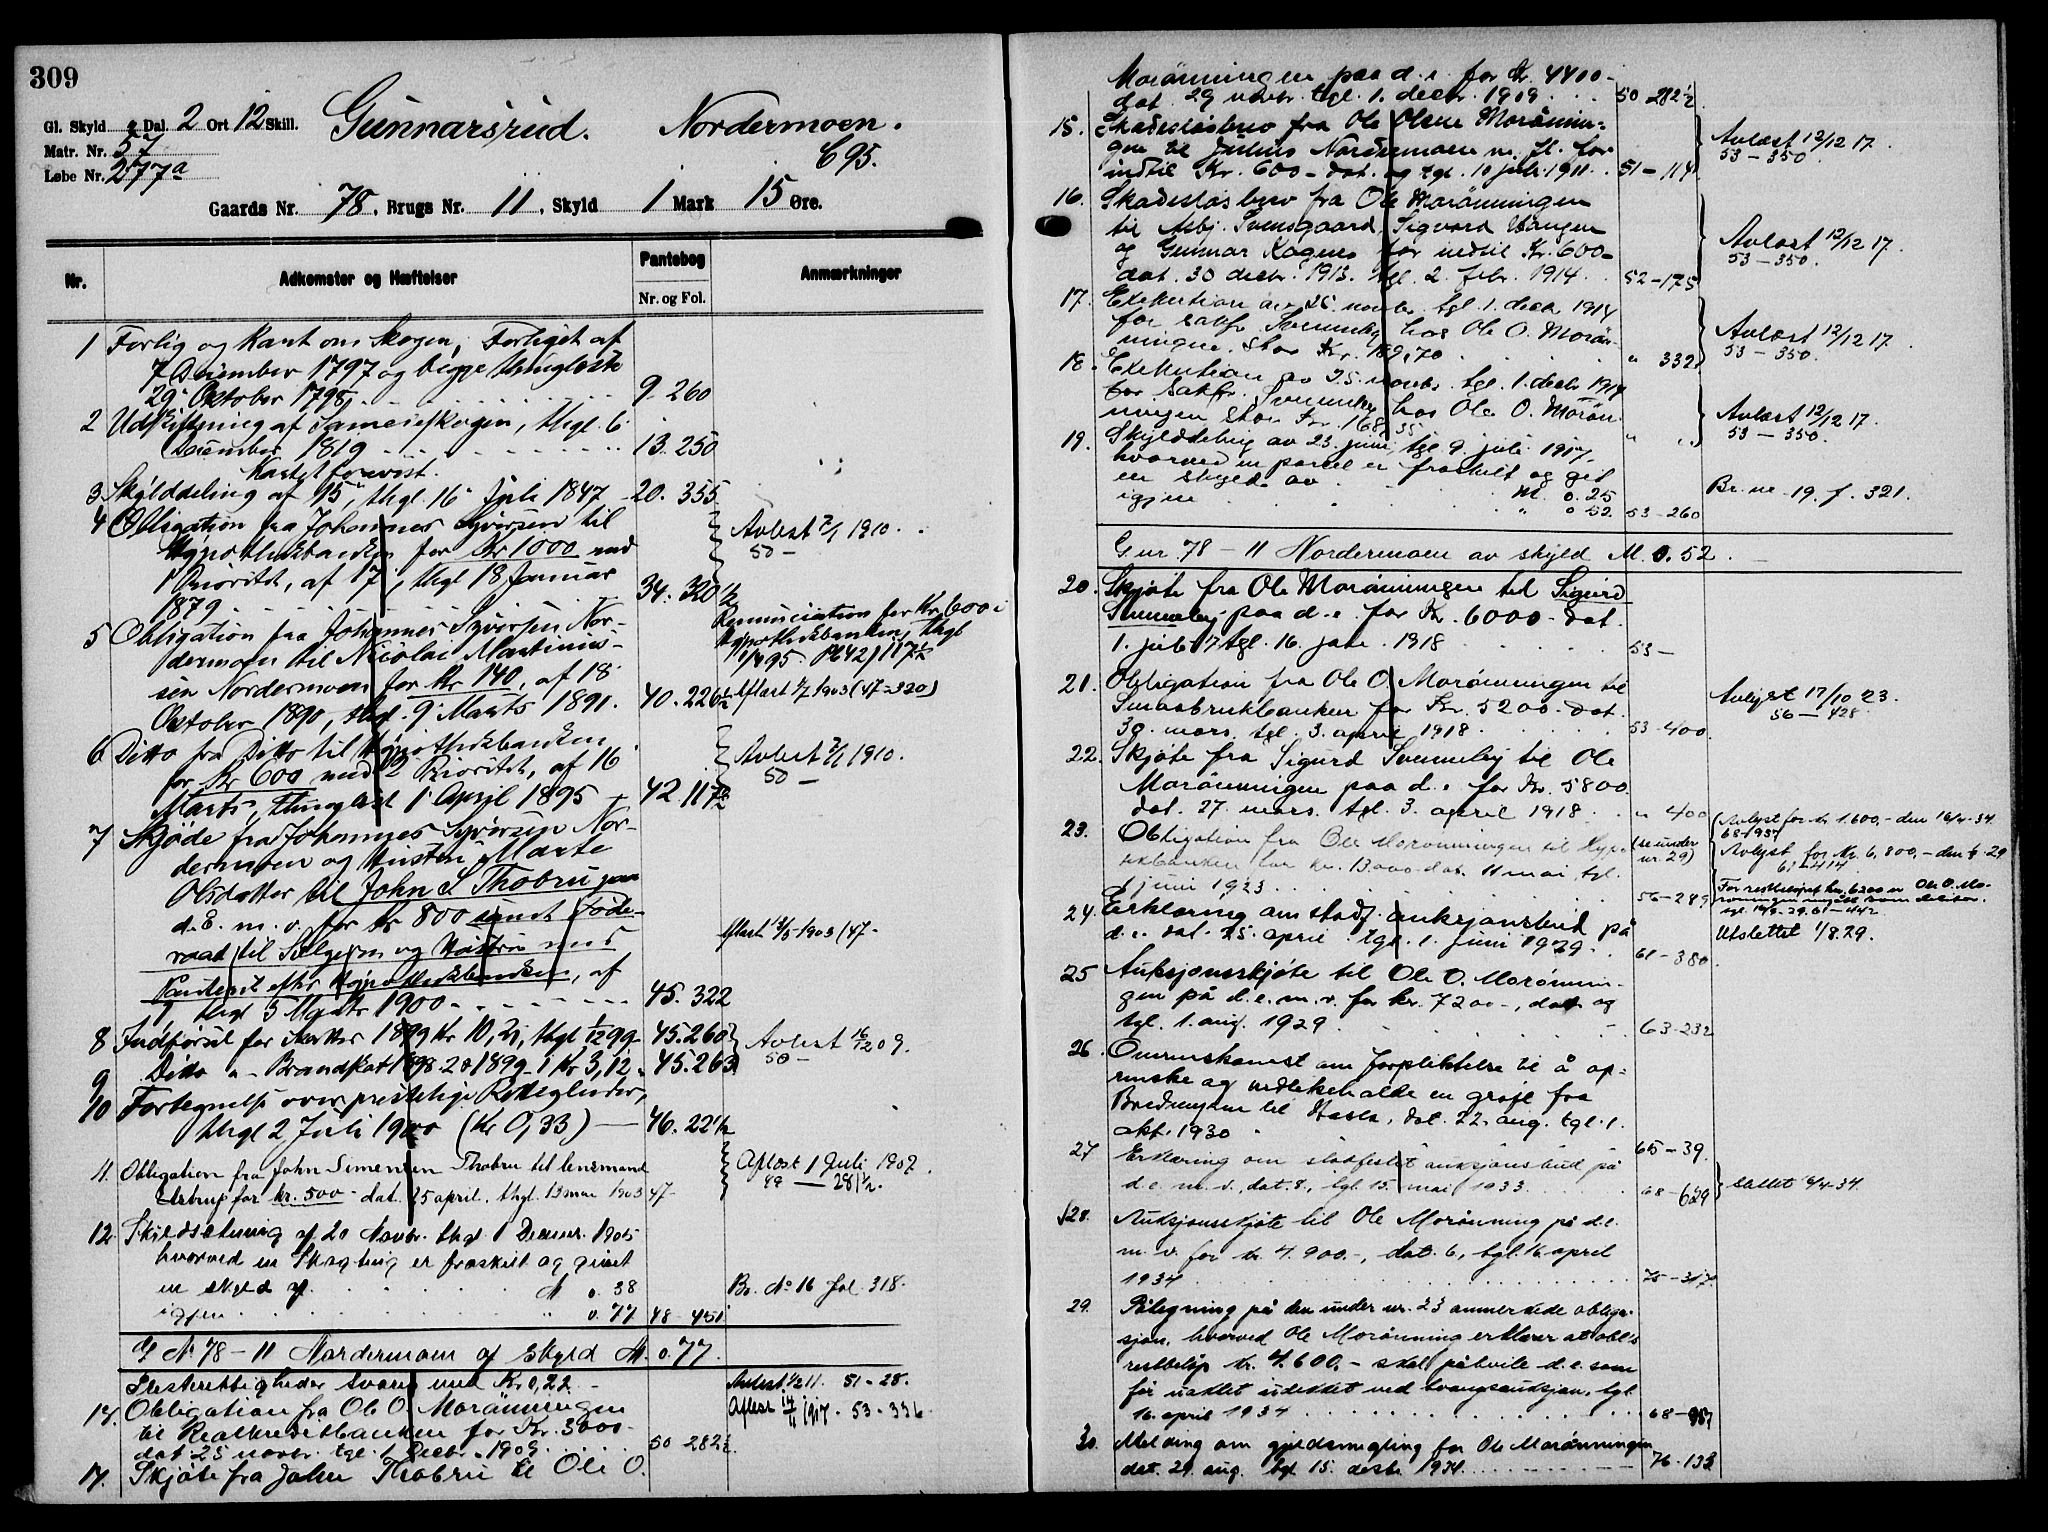 309
Gl. Skyld " Dal. 2 Ort 12 Skill. Gunnarsrud. Nordermoen.
Matr. Nr. 57
Løbe Nr. 277a
Gaards Nr. 78, Brugs Nr. 11, Skyld 1 Mark 15 Øre.
Nr. Adkomster og Hæftelser Pantebog Anmærkninger
Nr. og Fol.
1 Forlig og Kart om Skogen, Forliget af
7 December 1797 og begge thinglæste
29 Oktober 1798 9. 260
2 Udskiftning af Sameieskogen, thgl. 6
December 1819 13. 250
3 Skylddeling af 15, thgl. 16 Juli 1847 20. 355
4 Obligation fra Johannes Syversen til Avlest 7/1 1910.
Hypothekbanken for Kr 1000 med 50 —
1 Prioritet, af 17, thgl 18 Januar
1879 34. 320 1/2
Renunciation for Kr. 600 i
Hypothekbanken, thgl
5 Obligation fra Johannes Syversen Nor-
dermoen til Nicolai Martinius-
sen Nordermoen for Kr 140, af 18
Oktober 1890, thgl. 9 Marts 1891. 40. 226 1/2 Aflæst 1/7 1903 (47-320)
6 Ditto fra Ditto til Hypothekbanken Avlest 7/1 1910.
for Kr 600 med 2 Prioritet, af 16 50 —
Marts, thinglæst 1 April 1895 42. 117 1/2
7 Skjøde fra Johannes Syversen Nor-
dermoen og Hustru Marte
Olsdatter til John S. Thobru paa
d. E. m. v. for Kr 800 samt Føde-
raad til Sælgeren og Hustru med
Panteret efter Hypothekbanken, af
thgl 5 Marts 1900 45. 322
8 Indførsel for Skatter 1899 Kr 10,21, thgl 1/12 99 45. 260 Avlest 16/12 09.
9 Ditto " Brandkont 1898 20 1899 - 1 Kr 3,12 " 45. 263 50 —
10 Fortegnelse over præstelige Rettigheder,
thgl 2 Juli 1900 (Kr 0,33) 46. 22 1/2
11. Obligation fra John Simensen Thobru til lensmand Aflæst 1 Juli 1909.
for kr. 500 dat. 25 april, thgl. 13 mai 1903 47- 49 — 281 1/2.
12. Skyldsetning af 20 Novbr. thgl 1 Decmr. 1905
hvorved en Skogteig er fraskilt og givet
en skyld af M 0.38 Br. No 16 fol. 318.
igjen " 0.77 48 - 451
G No 78 — 11 Nordermoen af skyld M. 0.77.
Presterettigheder svares med Kr 0,22
14. Obligation fra Ole O. Morønningen
til Realkreditbanken for Kr. 3000-
dat. 25 novbr. tgl. 1 Decbr. 1909 50 282 1/2
17. Skjøte fra John Thobru til Ole O.
Morønningen paa d. e. for Kr. 4400-
dat. 29 novbr. tgl. 1. decbr. 1909 50 282 1/2
15. Skadesløsbrev fra Ole Olsen Morønnin-
gen til Julius Nordermoen m. fl. for Avlæst 12/12 17.
indtil Kr. 600- dat. og tgl. 10 juli 1911. 51 - 114 53 — 350.
16. Skadesløsbrev fra Ole Morønningen
til Asbj. Svensgaard, Sigvard Wangen Avlæst 12/12 17.
og Gunnar Kogness for indtil Kr. 600- 53 — 350.
dat. 30 decbr. 1913. tgl. 2. febr. 1914. 52 - 175
17. Exekution av 25. novbr. tgl. 1. decbr 1914 Avlæst 12/12 17.
for sakfr. Svenneby hos Ole O. Morøn- 53 — 350.
ningen. Stor Kr. 189,70 " 332
18. Exekution av 25. novbr. tgl. 1. decbr 1914
for sakfr. Svenneby hos Ole O. Morøn- Avlæst 12/12 17.
ningen Stor Kr. 168,35 " " 53 — 350.
19. Skylddeling av 23. juni, tgl. 9. juli 1917.
hvorved en parcel er fraskilt og git
en skyld av M. 0.25 Br. nr. 19. f. 321.
igjen " 0 52 53 - 260
Gnr. 78 — 11 Nordermoen av skyld M. 0.52.
20. Skjøte fra Ole Morønningen til Sigurd
Svenneby paa d. e. for Kr. 6000- dat.
1. juli 17 tgl. 16. jan. 1918 53 —
21. Obligation fra Ole O. Morønningen til Avlyst 17/10 23.
Smaabrukbanken for Kr. 5200- dat. 56 — 428
30. mars. tgl. 3. april 1918 53 - 400
22. Skjøte fra Sigurd Svenneby til Ole
Morønningen paa d. e. for Kr. 5800
dat. 27. mars. tgl. 3. april 1918 " 400
23. Obligation fra Ole Morønningen til Hypo- (se under nr. 29) Avlyst for kr. 1.600,- den 16/4-34
tekbanken for kr. 13.000 dat. 11 mai, tgl. Avlyst for kr. 6.800,- den
1 juni 1923 56 - 289
24. Erklæring om stadf. auksjonsbud på
d. e. dat. 25. april tgl. 1. juni 1929 61 - 380 Utslettet 1/8.29.
25 Auksjonsskjøte til Ole O. Morønnin-
gen på d. e. m. v. for kr. 7200-, dat. og
tgl. 1. aug. 1929 63 - 232
26. Overenskomst om forpliktelse til å op-
renske og vedlikeholde en grøft fra
til dat. 22. aug. tgl. 1.
okt. 1930 65 - 39.
27 Erklæring om stadfestet auksjonsbud på
d. e. m. v., dat. 8., tgl. 15. mai 1933 68 - 629 slettet 16/4-34
28. Auksjonsskjøte til Ole Morønning på d. e.
m. v. for kr. 4.900.-, dat. 6, tgl. 16 april
1934 75 - 317
29. Påtegning på den under nr. 23 anmerkede obliga-
sjon, hvorved Ole Morønning erklærer at obl.s
restbeløp kr. 4.600.- skal påhvile d. e. som
før uaktet udekket ved tvangsauksjon, tgl.
16. april 1934 68 - 957
30. Melding om gjeldsmegling for Ole Morønningen
dat. 29. aug. tgl. 15. 1934 76 - 133